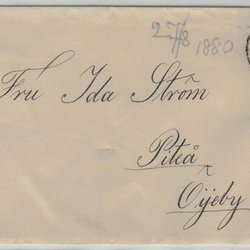 27/8 1880
Fru Ida Ström
Piteå
Öijeby